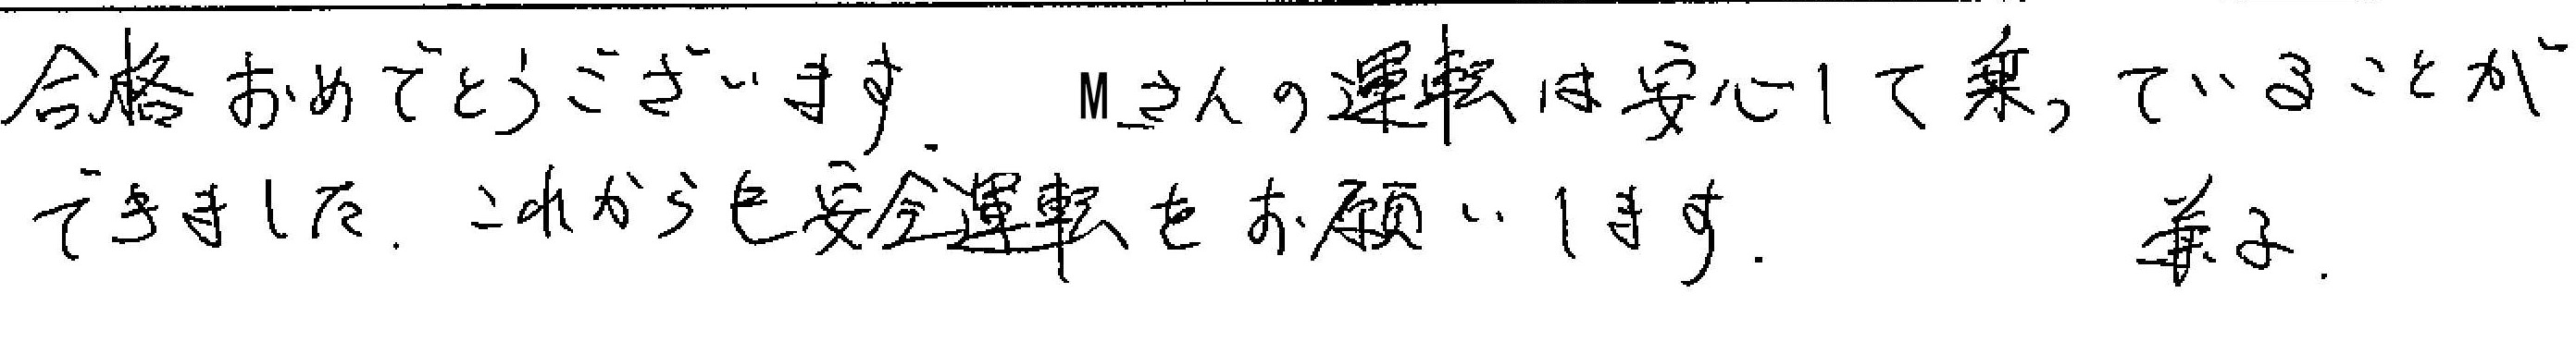 合格おめでとうございます. Mさんの運転は安心して乗っていることが
できました. これからも安全運転をお願いします.